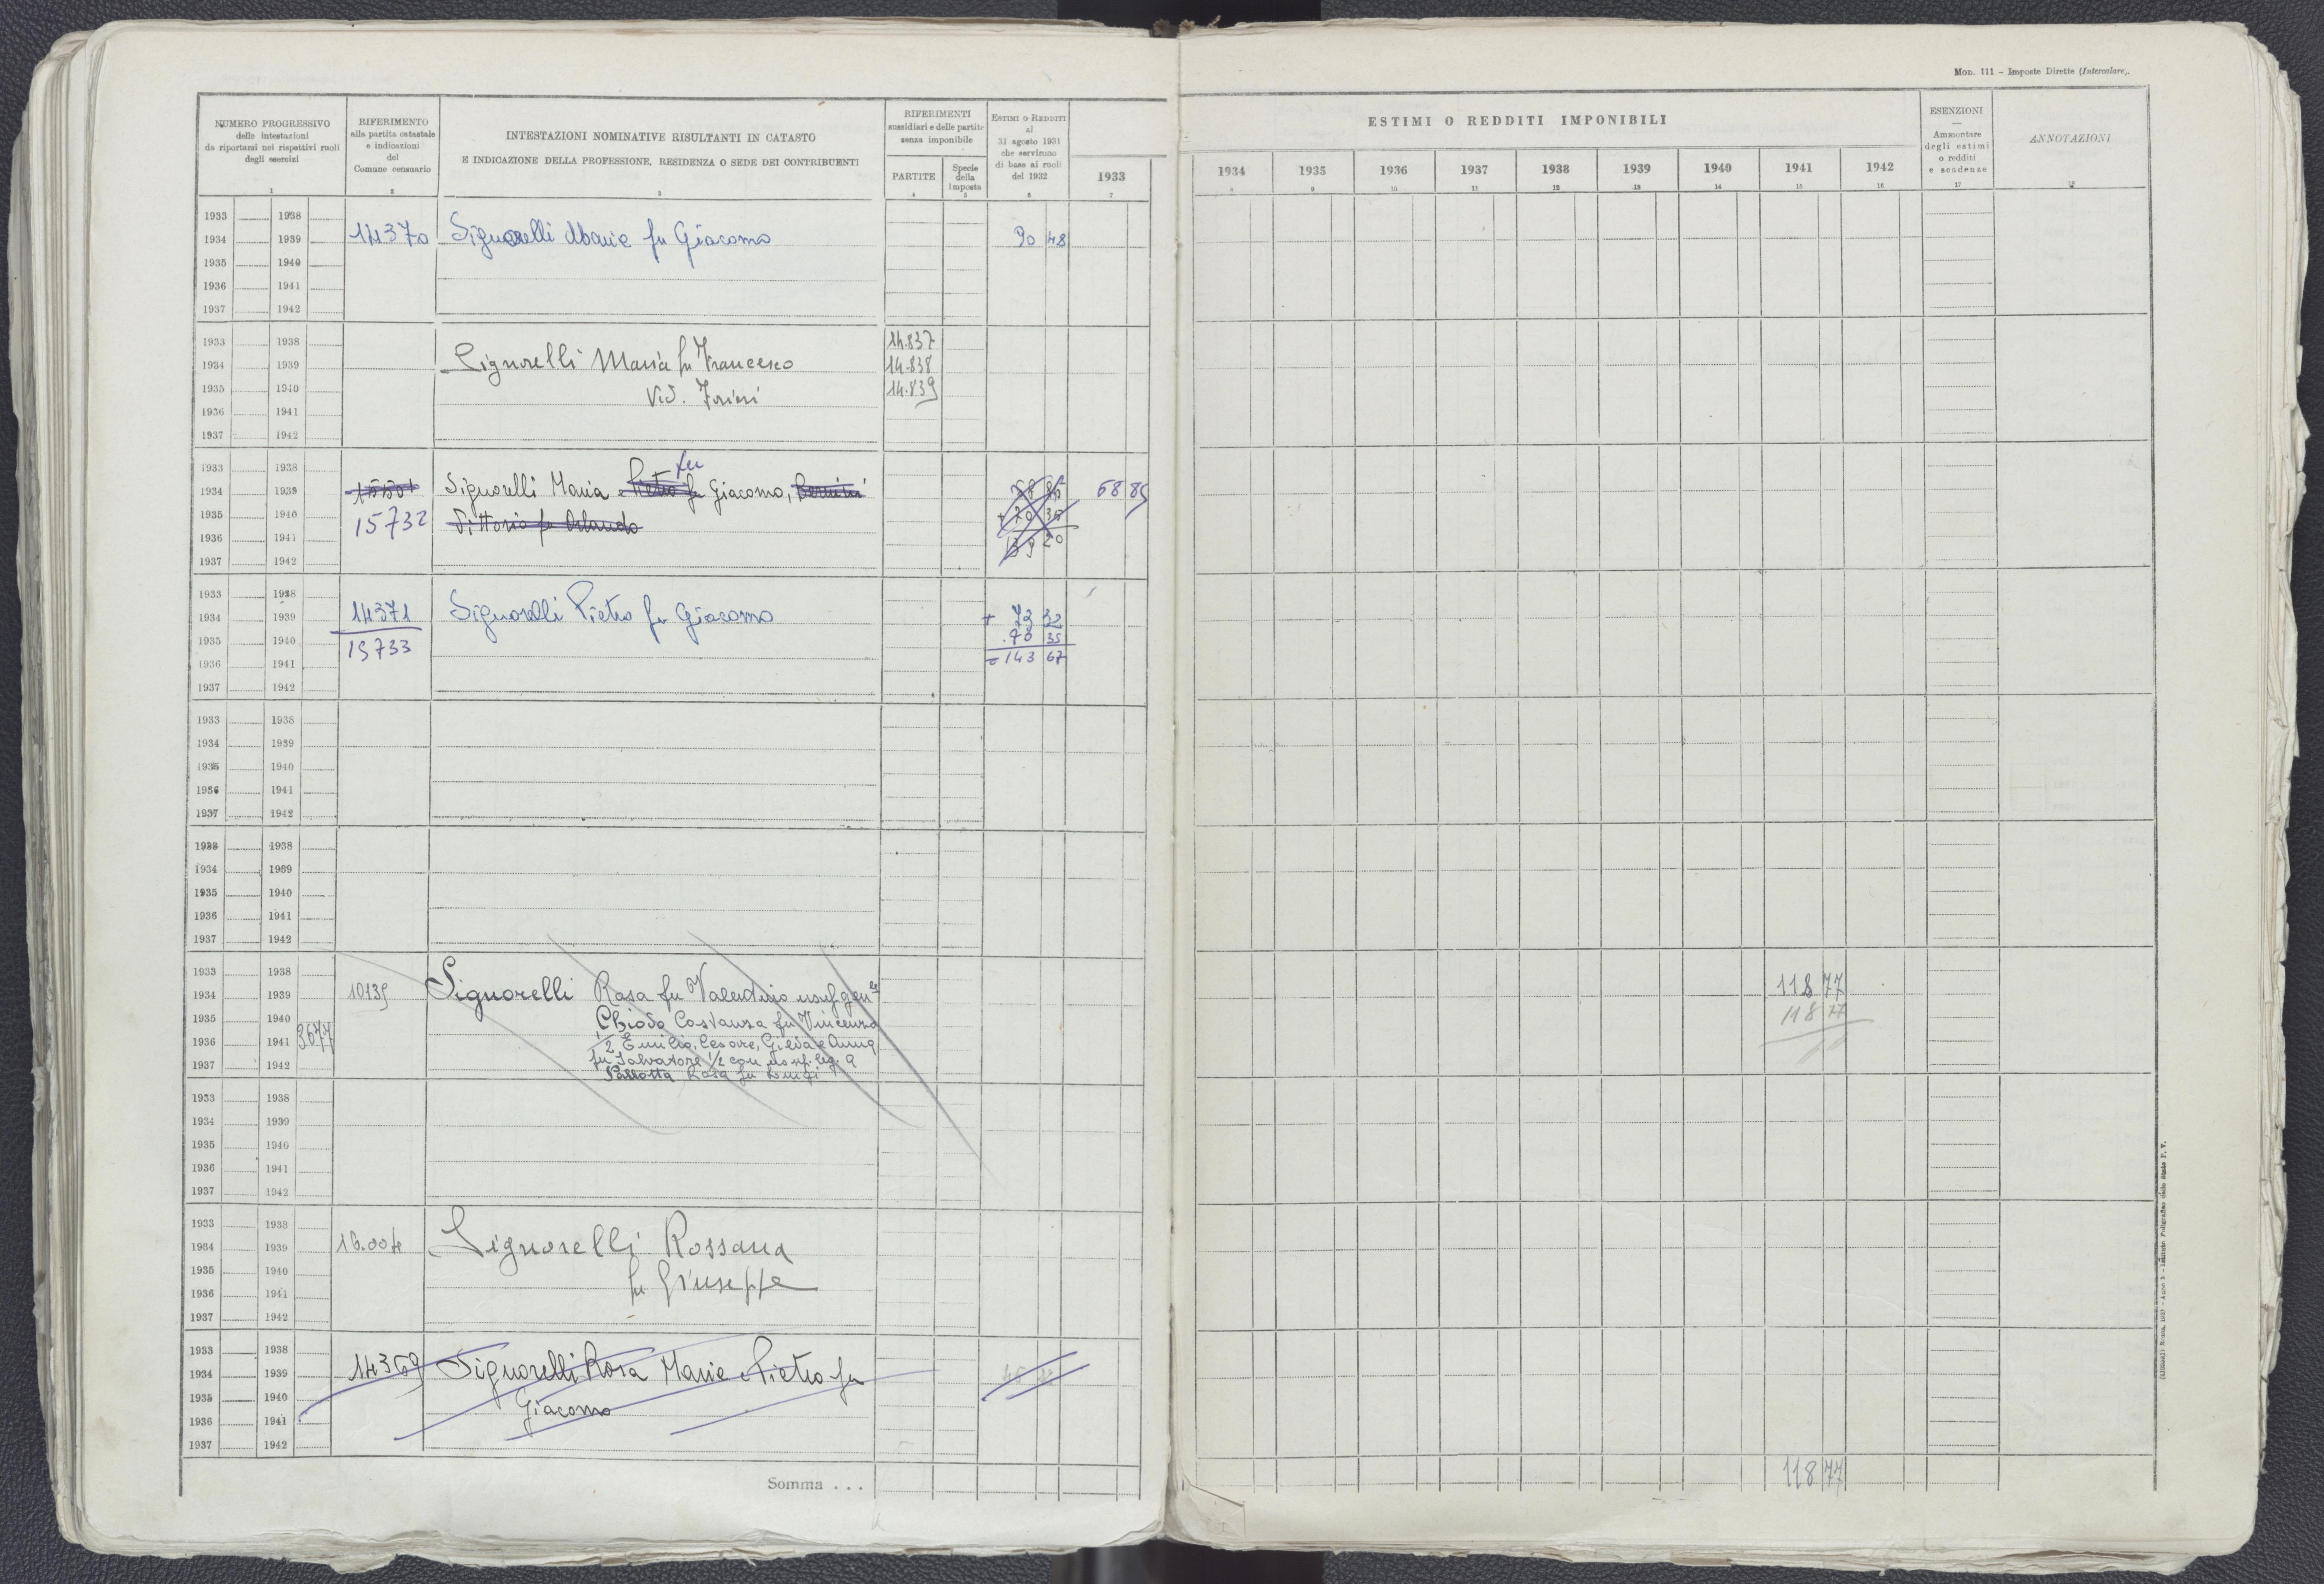 Mod. 111 – Imposte Dirette (Intercalare).
NUMERO PROGRESSIVO
delle intestazioni
da riportarsi nei rispettivi ruoli
degli esercizi
1
RIFERIMENTO
alla partita catastale
e indicazioni
del
Comune censuario
2
INTESTAZIONI NOMINATIVE RISULTANTI IN CATASTO
E INDICAZIONE DELLA PROFESSIONE, RESIDENZA O SEDE DEI CONTRIBUENTI
3
RIFERIMENTI
sussidiari e delle partite
senza imponibile
PARTITE
4
Specie
della
imposta
5
ESTIMI O REDDITI
al
31 agosto 1931
che servirono
di base ai ruoli
del 1932
6
1933
7
ESTIMI O REDDITI IMPONIBILI
1934 1935 1936 1937 1938 1939 1940 1941 1942
8 9 10 11 12 13 14 15 16
ESENZIONI
—
Ammontare
degli estimi
o redditi
e scadenze
17
ANNOTAZIONI
18
1933 1938
1934 1939 14370 Signorelli Maria fu Giacomo 90 48
1935 1940
1936 1941
1937 1942
1933 1938 14.837
1934 1939 Signorelli Maria fu Francesco 14.838
1935 1940 Vid. 14.839
1936 1941
1937 1942
1933 1938 fu
1934 1939 Signorelli Maria e Pietro fu Giacomo, 68 85 68 85
1935 1940 15732 Vittorio fu Orlando + 70 35
1936 1941 139 20
1937 1942
1933 1938
1934 1939 14371 Signorelli Pietro fu Giacomo + 73 32
1935 1940 15733 70 35
1936 1941 = 143 67
1937 1942
1933 1938
1934 1939
1935 1940
1936 1941
1937 1942
1933 1938
1934 1939
1935 1940
1936 1941
1937 1942
1933 1938
1934 1939 10135 Signorelli Rosa fu Valentino usuf. gen 118 77
1935 1940 Chiodo Costanza fu Vincenzo 118 77
1936 1941 3677 1/2 Emilio, Cesare, Gilda e Anna
1937 1942 fu Salvatore 1/2 con usuf. leg. a
Parrotta Rosa fu Luigi
1933 1938
1934 1939
1935 1940
1936 1941
1937 1942
1933 1938
1934 1939 16.004 Signorelli Rossana
1935 1940 fu Giuseppe
1936 1941
1937 1942
1933 1938
1934 1939 14369 Signorelli Rosa Maria e Pietro fu
1935 1940 Giacomo
1936 1941
1937 1942
Somma . . . 118 77